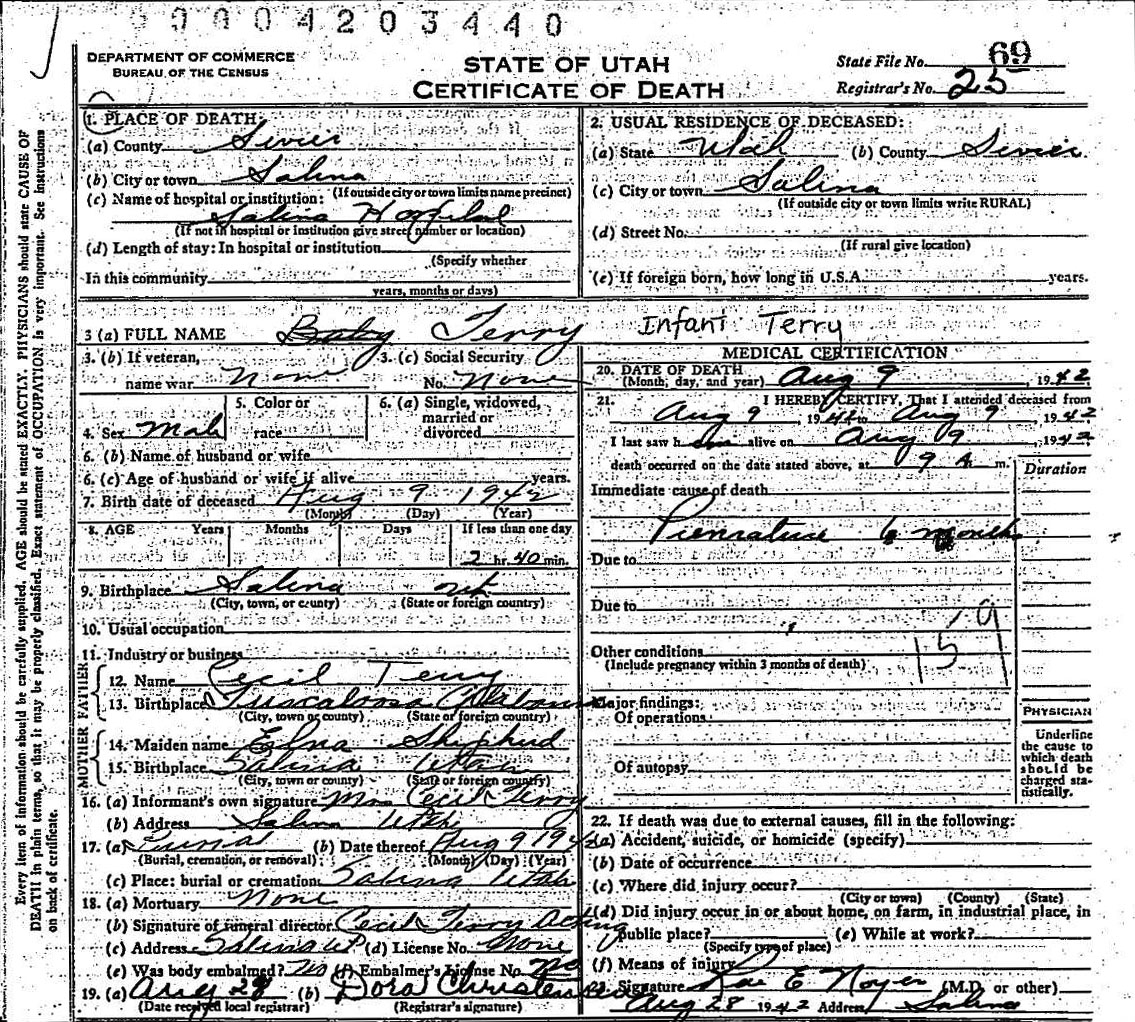 0004203440
DEPARTMENT OF COMMERCE
BUREAU OF THE CENSUS
STATE OF UTAH
CERTIFICATE OF DEATH
State File No. 69
Registrar's No. 25
1. PLACE OF DEATH:
(a) County Sevier
(b) City or town Salina
(If outside city or town limits name precinct)
(c) Name of hospital or institution:
Salina Hospital
(If not in hospital or institution give street number or location)
(d) Length of stay: In hospital or institution
(Specify whether
In this community
years, months or days)
2. USUAL RESIDENCE OF DECEASED:
(a) State Utah (b) County Sevier
(c) City or town Salina
(If outside city or town limits write RURAL)
(d) Street No.
(If rural give location)
(e) If foreign born, how long in U.S.A. years.
3 (a) FULL NAME Baby Terry Infant Terry
3. (b) If veteran, 3. (c) Social Security
name war None No. None
4. Sex Male 5. Color or race 6. (a) Single, widowed, married or divorced
6. (b) Name of husband or wife
6. (c) Age of husband or wife if alive years.
7. Birth date of deceased Aug 9 1942
(Month) (Day) (Year)
8. AGE Years Months Days If less than one day
2 hr. 40 min.
9. Birthplace Salina ut
(City, town, or county) (State or foreign country)
10. Usual occupation
11. Industry or business
FATHER
12. Name Cecil Terry
13. Birthplace Tuscaloosa Alabama
(City, town or county) (State or foreign country)
MOTHER
14. Maiden name Edna Shepherd
15. Birthplace Salina Utah
(City, town or county) (State or foreign country)
16. (a) Informant's own signature Mrs Cecil Terry
(b) Address Salina Utah
17. (a) Burial (b) Date thereof Aug 9 1942
(Burial, cremation, or removal) (Month) (Day) (Year)
(c) Place: burial or cremation Salina Utah
18. (a) Mortuary None
(b) Signature of funeral director Cecil Terry Acting
(c) Address Salina ut (d) License No. None
(e) Was body embalmed? No (f) Embalmer's License No. No
19. (a) Aug 28 (b) Dora Christensen
(Date received local registrar) (Registrar's signature)
MEDICAL CERTIFICATION
20. DATE OF DEATH
(Month, day, and year) Aug 9, 1942
21. I HEREBY CERTIFY, That I attended deceased from
Aug 9 1942 to Aug 9 1942
I last saw h alive on Aug 9, 1942
death occurred on the date stated above, at 9 A m.
Duration
Immediate cause of death
Premature 6 months
Due to
Due to
Other conditions
(Include pregnancy within 3 months of death)
159
Major findings:
Of operations
Of autopsy
PHYSICIAN
Underline
the cause to
which death
should be
charged sta-
tistically.
22. If death was due to external causes, fill in the following:
(a) Accident, suicide, or homicide (specify)
(b) Date of occurrence
(c) Where did injury occur?
(City or town) (County) (State)
(d) Did injury occur in or about home, on farm, in industrial place, in
public place? (e) While at work?
(Specify type of place)
(f) Means of injury
23. Signature Rae E Noyes (M.D. or other)
Aug 28 1942 Address Salina
Every item of information should be carefully supplied. AGE should be stated EXACTLY. PHYSICIANS should state CAUSE OF
DEATH in plain terms, so that it may be properly classified. Exact statement of OCCUPATION is very important. See instructions
on back of certificate.